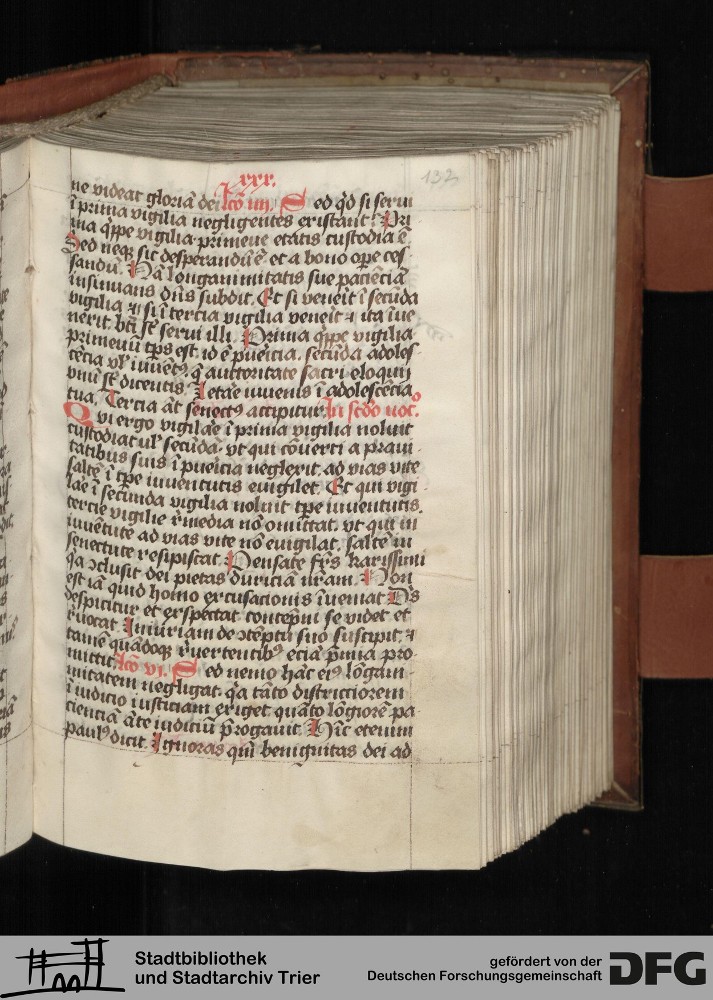 xxx.
132
ne videat gloriã dei Lcõ iiii. Sed qͥd si serui
ĩ prima vigilia negligentes extitãt? Pri
ma qͥppe vigilia primeue etatis custodia ẽ
Sed neqз sic desperandũ ẽ et a bono oꝑe ces
sandũ. Nã longanimitatis sue paciẽciã
insinuans dñs subdit. Et si veneĩt ĩ secũda
vigilia ⁊ si ĩ tercia vigilia veneĩt ⁊ ita ĩue
nerit. bti st̃ serui illi. Prima qͥppe vigilia
primeuũ tp̃s est. id ẽ pueicia. secũda adoles
cẽcia vl̓ iuuẽtꝰ. q̃ auctoritate sacri eloquij
vnũ st̃ dicentis. Letare iuuenis ĩ adolescẽcia
tua. Tercia at̃ senectꝰ accipitur. In scd̃o noc.º
Qui ergo vigilãe ĩ prima vigilia noluit
custodiat ul̓ secũdã. vt qui cõuerti a praui
tatibus suis ĩ pueicia neglexit. ad vias vite
saltẽ ĩ tp̃e iuuentutis euigilet. Et qui vigi
lãe ĩ secunda vigilia noluit tp̃e iuuentutis.
tercie vigilie r̃media nõ omittat. vt qui in
iuuẽtute ad vias vite nõ euigilat. saltẽ in
senectute resipiscat. Pensate fr̃s karissimi
q̃a ꝯclusit dei pietas duriciã nr̃am. Non
est iã quid homo excusacionis ĩueniat. Ds̃
despicitur et exspectat contẽpni se videt et
r̃uocat. Iniuriam de ꝯtẽptu suo suscipit. ⁊
tamẽ quãdoqз r̃uertentibꝰ eciã p̃mia pro
mittit. Lcõ vi. Sed nemo hãc eiꝰ lõgani
mitatem negligat. q̃a tãto districtiorem
ĩ iudicio iusticiam exiget. quãto lõgiorẽ pa
cienciã ãte iudiciũ p̃rogauit. Hĩc etenim
paulꝰ dicit. Ignoras qm̃ benignitas dei ad
Stadtbibliothek
und Stadtarchiv Trier
gefördert von der
Deutschen Forschungsgemeinschaft
DFG